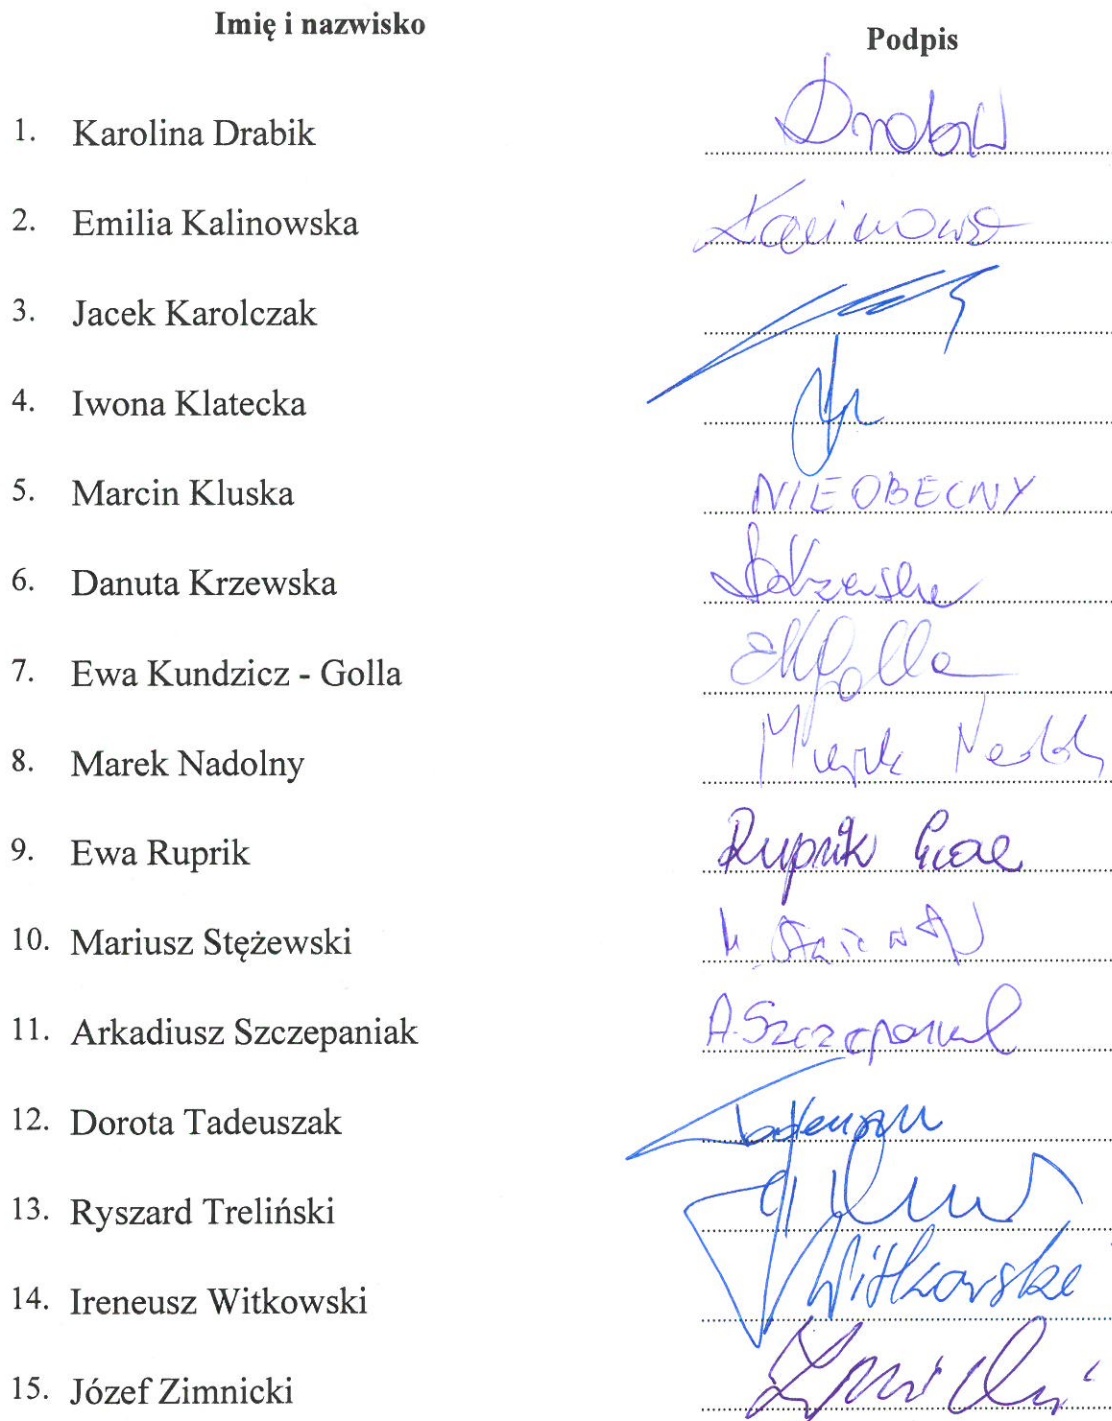 Imię i nazwisko Podpis
1. Karolina Drabik Drabik
2. Emilia Kalinowska
3. Jacek Karolczak
4. Iwona Klatecka
5. Marcin Kluska NIEOBECNY
6. Danuta Krzewska
7. Ewa Kundzicz - Golla EKGolla
8. Marek Nadolny
9. Ewa Ruprik Ruprik Ewa
10. Mariusz Stężewski
11. Arkadiusz Szczepaniak A. Szczepaniak
12. Dorota Tadeuszak
13. Ryszard Treliński
14. Ireneusz Witkowski Witkowski
15. Józef Zimnicki